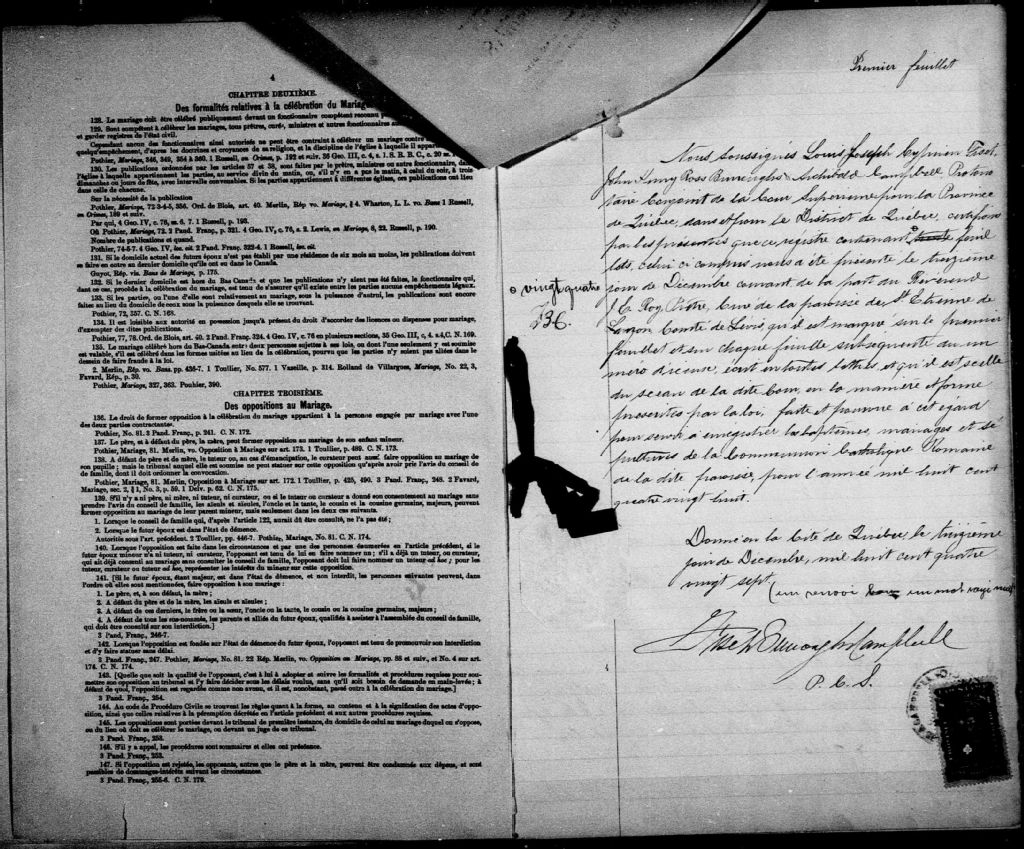 4
CHAPITRE DEUXIÈME.
Des formalités relatives à la célébration du Mariage
128. Le mariage doit être célébré publiquement devant un fonctionnaire compétent reconnu
129. Sont compétents à célébrer les mariages, tous prêtres, curés, ministres et autres fonctionnaires
et garder registres de l'état civil.
Cependant aucun des fonctionnaires ainsi autorisés ne peut être contraint à célébrer un mariage contre
quelqu'empêchement, d'après les doctrines et croyances de sa religion, et la discipline de l'église à laquelle il appartient
Pothier, Mariage, 346, 349, 354 à 360. 1 Russell, on Crimes, p. 192 et suiv. 35 Geo. III, c. 4, s. 1. S. R. B. C., c. 20
130. Les publications ordonnées par les articles 57 et 58, sont faites par le prêtre, ministre ou autre fonctionnaire, dans
l'église à laquelle appartiennent les parties, au service divin du matin, ou, s'il n'y en a pas le matin, à celui du soir, à trois
dimanches ou jours de fête, avec intervalle convenables. Si les parties appartiennent à différentes églises, ces publications ont lieu
dans celle de chacune.
Sur la nécessité de la publication
Pothier, Mariage, 72 3-4-5, 355. Ord. de Blois, art. 40. Merlin, Rép vo. Mariage, § 4. Wharton, L. L. vo. Bans 1 Russell,
on Crimes, 189 et suiv.
Par qui, 4 Geo. IV, c. 76, ss. 6. 7. 1 Russell, p. 193.
Où Pothier, Mariage, 72. 2 Pand. Franç., p. 321. 4 Geo. IV, c. 76, s. 2. Lewis, on Mariage, 8, 22. Russell, p. 190.
Nombre de publications et quand.
Pothier, 74-5-7. 4 Geo. IV, loc. cit. 2 Pand. Franç. 322-4. 1 Russell, loc. cit.
131. Si le domicile actuel des futurs époux n'est pas établi par une résidence de six mois au moins, les publications doivent
se faire en outre au dernier domicile qu'ils ont eu dans le Canada.
Guyot, Rép. vis. Bans de Mariage, p. 175.
132. Si le dernier domicile est hors du Bas Canada et que les publications n'y aient pas été faites, le fonctionnaire qui,
dans ce cas, procède à la célébration du mariage, est tenu de s'assurer qu'il n'existe entre les parties aucuns empêchements légaux.
133. Si les parties, ou l'une d'elle sont relativement au mariage, sous la puissance d'autrui, les publications sont encore
faites au lieu du domicile de ceux sous la puissance desquels elle se trouvent.
Pothier, 72, 357. C. N. 168.
134. Il est loisible aux autorité en possession jusqu'à présent du droit d'accorder des licences ou dispenses pour mariage,
d'exempter des dites publications.
Pothier, 77, 78. Ord. de Blois, art. 40. 2 Pand. Franç. 324. 4 Geo. IV, c. 76 en plusieurs sections, 35 Geo. III, c. 4. s.4, C. N. 169.
135. Le mariage célébré hors du Bas-Canada entre deux personnes sujettes à ses lois, ou dont l'une seulement y est soumise
est valable, s'il est célébré dans les formes usitées au lieu de la célébration, pourvu que les parties n'y soient pas allées dans le
dessein de faire fraude à la loi.
2. Merlin, Rép. vo. Bans. pp. 436-7. 1 Toullier, No. 577. 1 Vazeille, p. 314. Rolland de Villargues, Mariage, No. 22, 3,
Favard, Rép., p. 30.
Pothier, Mariage, 327, 363. Pouhier, 390.
CHAPITRE TROISIÈME.
Des oppositions au Mariage.
136. Le droit de former opposition à la célébration du mariage appartient à la personne engagée par mariage avec l'une
des deux parties contractantes.
Pothier, No. 81. 3 Pand. Franç., p. 241. C. N. 172.
137. Le père, et à défaut du père, la mère, peut former opposition au mariage de son enfant mineur.
Pothier, Mariage, 81. Merlin, vo. Opposition à Mariage sur art. 173. 1 Toullier, p. 489. C. N. 173.
138. A défaut de père et de mère, le tuteur ou, au cas d'émancipation, le curateur peut aussi faire opposition au mariage de
son pupille ; mais le tribunal auquel elle est soumise ne peut statuer sur cette opposition qu'après avoir pris l'avis du conseil de
famille, dont il doit ordonner la convocation.
Pothier, Mariage, 81. Merlin, Opposition à Mariage sur art. 172. 1 Toullier, p. 425, 490. 3 Pand. Franç., 248. 2 Favard,
Mariage, sec. 2, § 1, No. 3, p. 59. 1 Delv. p. 62. C. N. 175.
139. S'il n'y a ni père, ni mère, ni tuteur, ni curateur, ou si le tuteur ou curateur a donné son consentement au mariage sans
prendre l'avis du conseil de famille, les aïeuls et aïeules, l'oncle et la tante, le cousin et la cousine germains, majeurs, peuvent
former opposition au mariage de leur parent mineur, mais seulement dans les deux cas suivants.
1. Lorsque le conseil de famille qui, d'après l'article 122, aurait dû être consulté, ne l'a pas été ;
2. Lorsque le futur époux est dans l'état de démence.
Autorités sous l'art. précédent. 2 Toullier, pp. 446-7. Pothier, Mariage, No. 81. C. N. 174.
140. Lorsque l'opposition est faite dans les circonstances et par une des personnes énumérées en l'article précédent, si le
futur époux mineur n'a ni tuteur, ni curateur, l'opposant est tenu de lui en faire nommer un ; s'il a déjà un tuteur, ou curateur,
qui ait déjà consenti au mariage sans consulter le conseil de famille, l'opposant doit lui faire nommer un tuteur ad hoc ; pour les
tuteur, curateur ou tuteur ad hoc, représenter les intérêts du mineur sur cette opposition.
141. [Si le futur époux, étant majeur, est dans l'état de démence, et non interdit, les personnes suivantes peuvent, dans
l'ordre où elles sont mentionnées, faire opposition à son mariage :
1. Le père, et, à son défaut, la mère ;
2. A défaut du père et de la mère, les aïeuls et aïeules ;
3. A défaut de ces derniers, le frère ou la sœur, l'oncle ou la tante, le cousin ou la cousine germains, majeurs ;
4. A défaut de tous les sus-nommés, les parents et alliés du futur époux, qualifiés à assister à l'assemblée du conseil de famille,
qui doit être consulté sur son interdiction.]
3 Pand. Franç., 246-7.
142. Lorsque l'opposition est fondée sur l'état de démence du futur époux, l'opposant est tenu de promouvoir son interdiction
et d'y faire statuer sans délai.
3 Pand. Franç., 247. Pothier, Mariage, No. 81. 22 Rép. Merlin, vo. Opposition au Mariage, pp. 88 et suiv., et No. 4 sur art.
174. C. N. 174.
143. [Quelque que soit la qualité de l'opposant, c'est à lui à adopter et suivre les formalité et procédures requises pour sou-
mettre son opposition au tribunal et l'y faire décider sous les délais voulus, sans qu'il soit besoin de demande en main-levée ; à
défaut de quoi, l'opposition est regardée comme non avenu, et il est, nonobstant, passé outre à la célébration du mariage.]
3 Pand. Franç., 254.
144. Au code de Procédure Civile se trouvent les règles quant à la forme, au contenu et à la signification des actes d'oppo-
sition, ainsi que celles relatives à la péremption décrétée en l'article précédent et aux autres procédures requises.
145. Les oppositions sont portées devant le tribunal de première instance, du domicile de celui au mariage duquel on s'oppose,
ou du lieu où doit se célébrer le mariage, ou devant un juge de ce tribunal.
3 Pand. Franç., 253.
146. S'il y a appel, les procédures sont sommaires et elles ont préséance.
3 Pand. Franç., 253.
147. Si l'opposition est rejetée, les opposants, autres que le père et la mère, peuvent être condamnés aux dépens, et sont
passibles de dommages-intérêts suivant les circonstances.
3 Pand. Franç., 255-6. C. N. 179.
Premier feuillet
Nous soussignés Louis Joseph Cyprien Fiset,
John Henry Ross Burroughs Archibald Campbell Protono
taire Conjoint de la Cour Supérieure pour la Province
de Québec, dans et pour le District de Québec, certifions
par les présentes que ce régistre contenant trente feuil
lets, celui ci compris nous a été présenté le treizième
jour de Décembre courant de la part du Révérend
J. E. Roy, Prêtre, Curé de la paroisse de St Etienne de
Lauzon Comté de Lévis, qu'il est marqué sur le premier
feuillet et sur chaque feuille subséquente du nu
méro d'icelui, écrit en toutes lettres, et qu'il est scellé
du sceau de la dite Cour, en la manière et forme
prescrites par la loi, faite et pourvue à cet égard
pour servir à enregistrer les baptêmes, mariages et sé
pultures de la Communion Catholique Romaine
de la dite paroisse, pour l'année mil huit cent
quatre vingt huit.
o vingt quatre
Donné en la Cité de Québec, le treizième
jour de Décembre, mil huit cent quatre
vingt sept (un renvoi un mot rayé nul)
Fiset Burroughs Campbell
P. C. S.